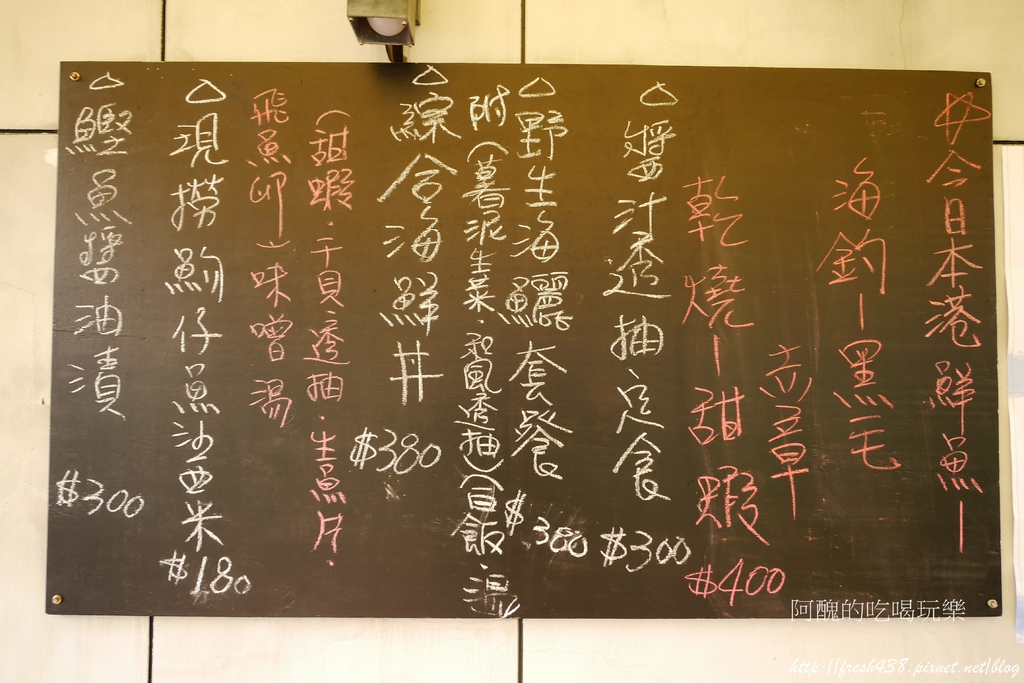 今日本港鮮魚—
海釣—黑毛
赤章
乾燒—甜蝦 $400
△醬汁透抽定食 $300
△野生海鱺套餐 $380
附(暮泥生菜.和風透抽)(白飯.湯)
△綜合海鮮丼 $380
(甜蝦.干貝.透抽.生魚片.
飛魚卵)味噌湯
△現撈魩仔魚沙西米 $180
△鰹魚醬油漬 $300
阿醜的吃喝玩樂
http://fresh438.pixnet.net/blog